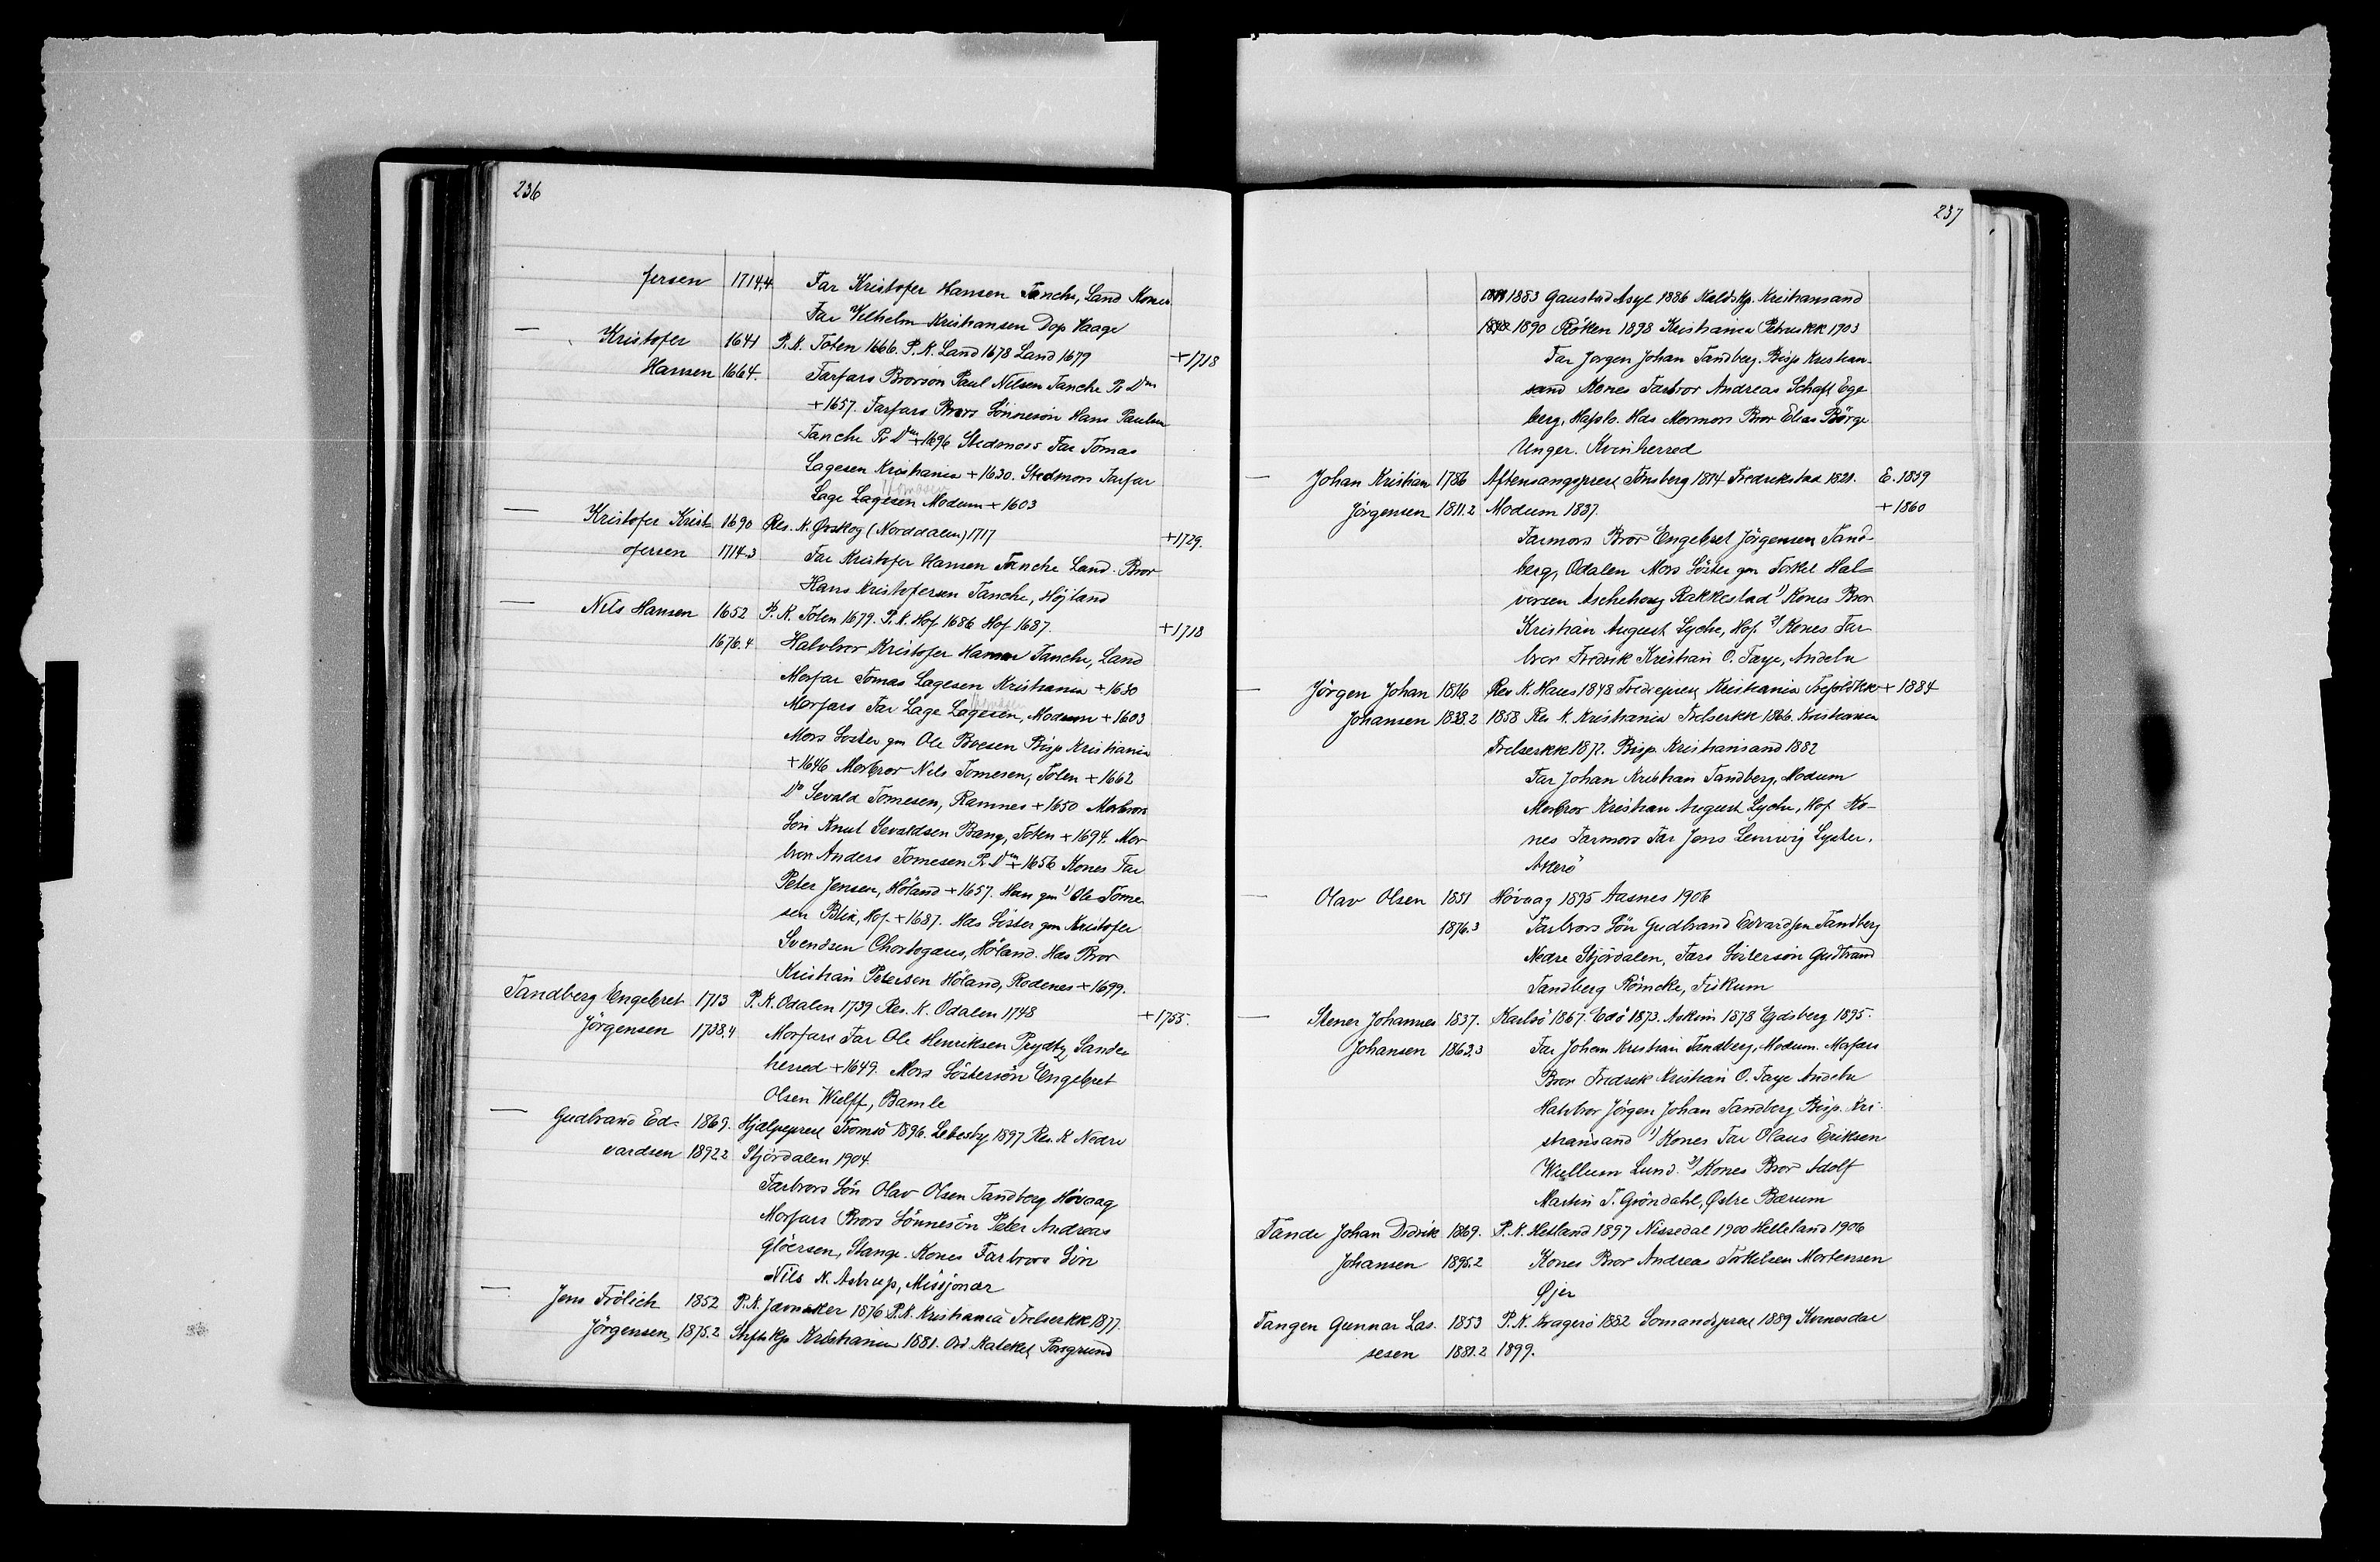 236
fersen 1714.4 Far Kristofer Hansen Tanche, Land Kones
Far Vilhelm Kristiansen Dop Vaage
— Kristofer 1641 P. K. Toten 1666. P. K. Land 1678 Land 1679 +1718
Hansen 1664. Farfars Brorsön Paul Nilsen Tanche Pr Dm
+1657. Farfars Brors Sönnesön Hans Paulsen
Tanche Pr Dm +1696 Stedmors Far Tomas
Lagesen Kristiania +1630. Stedmors Farfar
Lage Lagesen Modum +1603
— Kristofer Krist- 1690 Res. K. Ørskog (Norddalen) 1717 +1729.
ofersen 1714.3 Far Kristofer Hansen Tanche Land. Bror
Hans Kristofersen Tanche, Höjland
— Nils Hansen 1652 P. K. Toten 1679. P. K. Hof 1686 Hof 1687. +1718
1676.4 Halvbror Kristofer Hansen Tanche, Land
Morfar Tomas Lagesen Kristiania +1630
Morfars Far Lage Lagesen, Modum +1603
Mors Søster gm Ole Boesen Bisp Kristiania
+1646 Morbror Nils Tomesen, Toten +1662
Do Sevald Tomesen, Ramnes +1650 Morbrors
Sön Knut Sevaldsen Bang, Toten +1694. Mor-
bror Anders Tomesen Pr. Dm +1656 Kones Far
Peter Jensen, Höland +1657. Han gm 1) Ole Tome-
sen Blix, Hof +1687. Hds Söster gm Kristofer
Svendsen Chortogaus, Höland. Hds Bror
Kristian Petersen Höland, Rødenes +1699.
Tandberg Engebret 1713 P. K. Odalen 1739 Res. K. Odalen 1748 +1755.
Jörgensen 1738.4 Morfars Far Ole Henriksen Prydtz, Sande-
herred +1649. Mors Söstersön Engebret
Olsen Wulff, Bamle
— Gudbrand Ed- 1869. Hjælpeprest Tromsö 1896. Lebesby 1897 Res. K Nedre
vardsen 1892.2 Stjördalen 1904.
Farbrors Sön Olav Olsen Tandberg Hövaag
Morfars Brors Sönnesön Peter Andreas
Glöersen, Stange. Kones Farbrors Sön
Nils N. Astrup, Missjonær
— Jens Frölich 1852 P. K. Jævnaker 1876 P. K. Kristiania Frelserkk 1877
Jörgensen, 1875.2 Stiftskp Kristiania 1881. Ord. Katekel Porsgrund
237
1883 Gaustad Asyl 1886 Kaldskp. Kristiansand
1890 Röken 1898 Kristiania Petruskk 1903
Far Jørgen Johan Tandberg. Bisp Kristian-
sand Kones Farbror Andreas Schaft Ege-
berg, Hafslo. Hds Mormors Bror Elias Börge
Unger. Kvinherred
— Johan Kristian 1786 Aftensangsprest Tönsberg 1814 Fredrikstad 1821. E. 1859
Jörgensen 1811.2 Modum 1837. +1860
Farmors Bror Engebret Jörgensen Tand-
berg, Odalen Mors Söster gm Torkel Hal-
vorsen Aschehoug Rakkestad 1) Kones Bror
Kristian August Lyche, Hof. 2) Kones Far-
bror Fredrik Kristian O. Faye, Andebu
— Jörgen Johan 1816 Res K. Haus 1848 Tredieprest Kristiania Trefoldkk +1884
Johansen 1838.2 1858 Res K. Kristiania Frelserkk 1866. Kristiania
Frelserkk 1872. Bisp. Kristiansand 1882
Far Johan Kristian Tandberg, Modum
Morbror Kristian August Lyche, Hof Ko-
nes Farmors Far Jens Lemvig Lyster,
Akerö
— Olav Olsen 1851 Hövaag 1895 Aasnes 1906
1876.3 Farbrors Sön Gudbrand Edvardsen Tandberg
Nedre Stjördalen, Fars Söstersön Gudbrand
Tandberg Römcke, Fiskum
— Stener Johannes 1837. Karlsö 1867. Edö 1873. Askim 1878 Egdsberg 1895.
Johansen 1863.3 Far Johan Kristian Tandberg, Modum. Mofars
Bror Fredrik Kristian O. Faye Andebu
Halvbror Jörgen Johan Tandberg Bisp. Kri-
stiansand 1) Kones Far Olaus Eriksen
Wullum Lund. 2) Kones Bror Adolf
Martin T. Gröndahl, Østre Bærum
Tande Johan Didrik 1869. P. K. Hetland 1897 Nissedal 1900 Helleland 1906
Johansen 1895.2 Kones Bror Andreas Torkelsen Mortensen
Øjer
Tangen Gunnar Las- 1853 P. K. Kragerö 1882 Sømandsprest 1889 Kvinesdal
sesen 1881.2 1899.